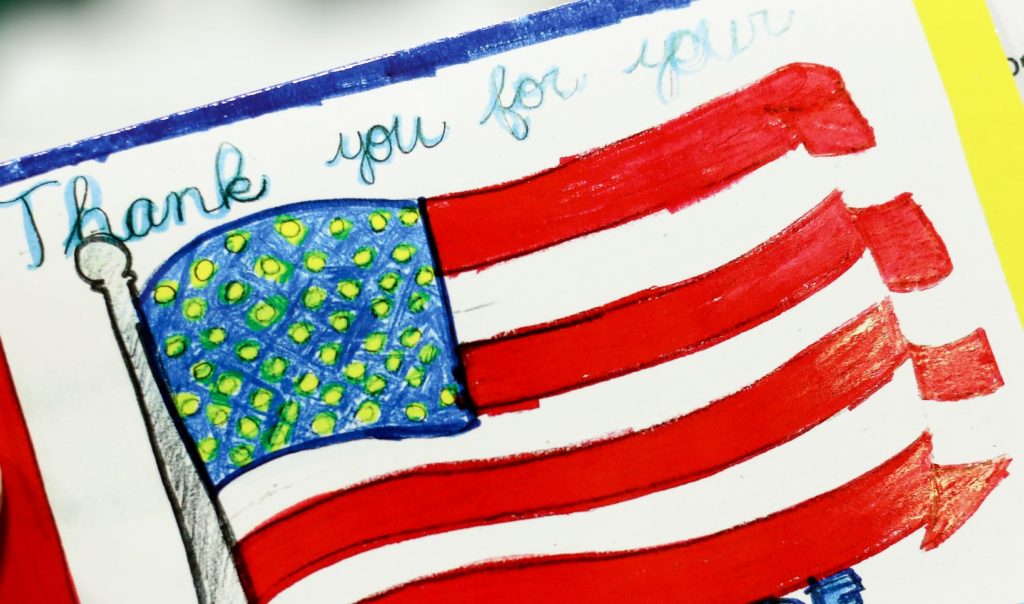 Thank you for your